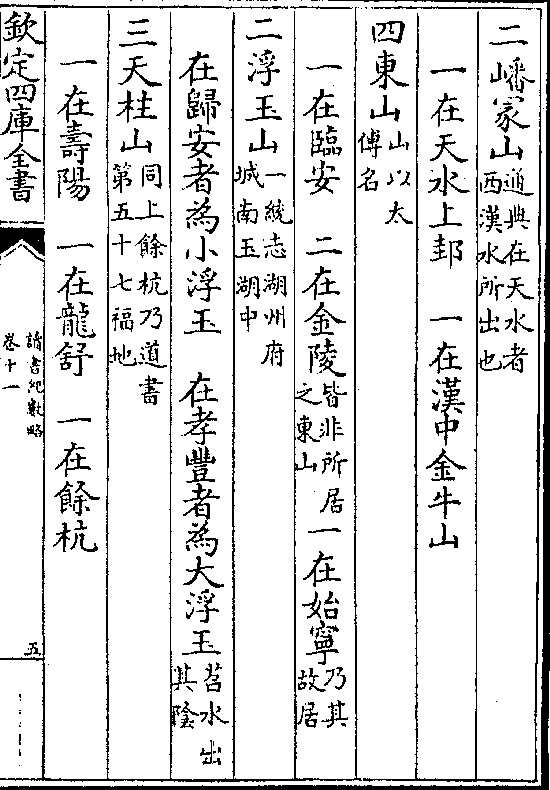 二嶓冢山通典在天水者西漢水所出也
一在天水上邽　一在漢中金牛山
四東山山以太傅名
一在臨安　二在金陵皆非所居之東山　一在始寧乃其故居
二浮玉山一統志湖州府城南玉湖中
在歸安者為小浮玉　在孝豐者為大浮玉苕水出其陰
三天柱山同上餘杭乃道書第五十七福地
一在壽陽　一在龍舒　一在餘杭
欽定四庫全書
讀書紀數略
卷十一
五